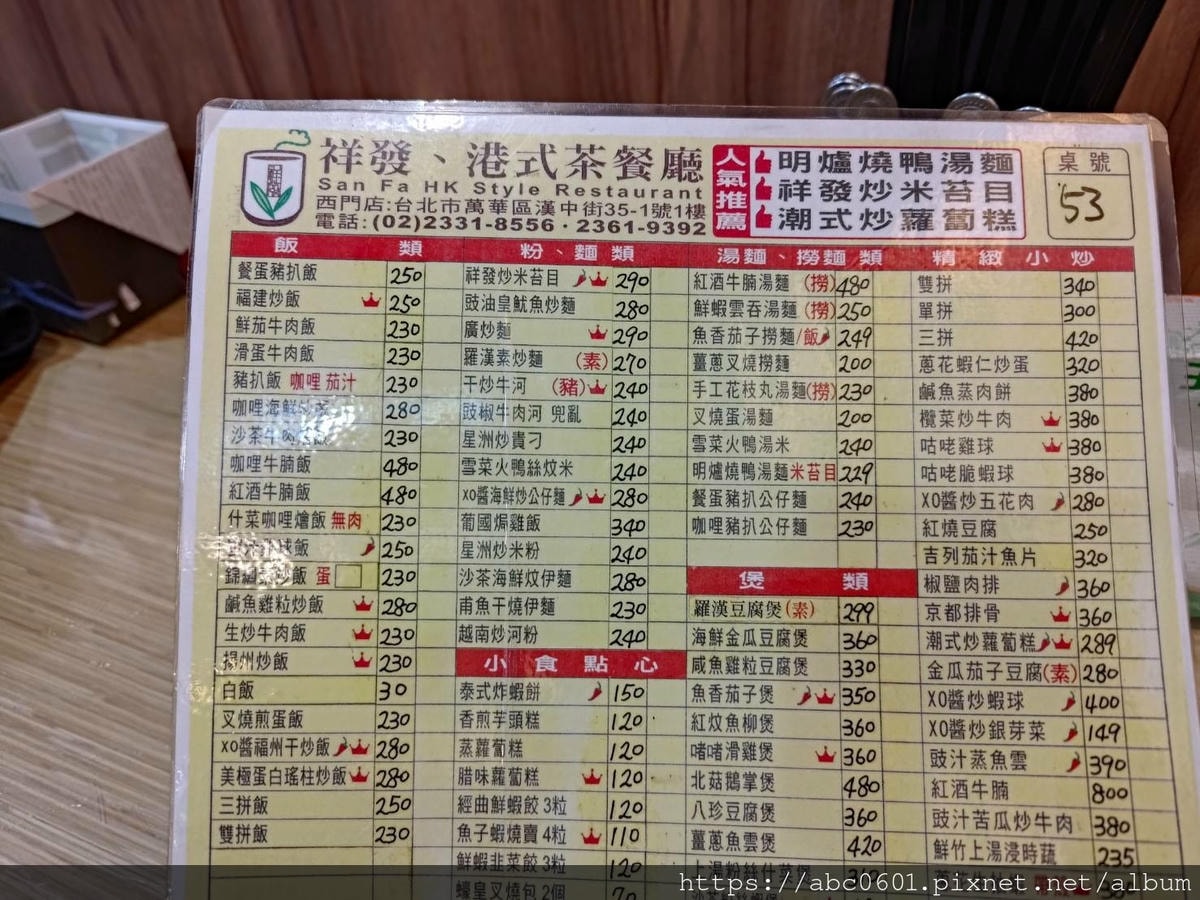 祥發、港式茶餐廳
San Fa HK Style Restaurant
西門店:台北市萬華區漢中街35-1號1樓
電話:(02)2331-8556·2361-9392
人氣推薦
明爐燒鴨湯麵
祥發炒米苔目
潮式炒蘿蔔糕
桌號
53
飯類
餐蛋豬扒飯 250
福建炒飯 250
鮮茄牛肉飯 230
滑蛋牛肉飯 230
豬扒飯 咖哩 茄汁 230
咖哩海鮮 280
沙茶牛 230
咖哩牛腩飯 480
紅酒牛腩飯 480
什菜咖哩燴飯 無肉 230
球飯 250
炒飯 蛋 230
鹹魚雞粒炒飯 280
生炒牛肉飯 230
揚州炒飯 230
白飯 30
叉燒煎蛋飯 230
XO醬福州干炒飯 280
美極蛋白瑤柱炒飯 280
三拼飯 250
雙拼飯 230
粉、麵類
祥發炒米苔目 290
豉油皇魷魚炒麵 280
廣炒麵 290
羅漢素炒麵 (素) 270
干炒牛河 (豬) 240
豉椒牛肉河 兜亂 240
星洲炒貴刁 240
雪菜火鴨絲炆米 240
XO醬海鮮炒公仔麵 280
葡國焗雞飯 340
星洲炒米粉 240
沙茶海鮮炆伊麵 280
甫魚干燒伊麵 230
越南炒河粉 240
小食點心
泰式炸蝦餅 150
香煎芋頭糕 120
蒸蘿蔔糕 120
腊味蘿蔔糕 120
經曲鮮蝦餃 3粒 120
魚子蝦燒賣 4粒 110
鮮蝦韭菜餃 3粒 120
蠔皇叉燒包 2個 70
湯麵、撈麵類
紅酒牛腩湯麵 (撈) 480
鮮蝦雲吞湯麵 (撈) 250
魚香茄子撈麵/飯 249
薑蔥叉燒撈麵 200
手工花枝丸湯麵(撈) 230
叉燒蛋湯麵 200
雪菜火鴨湯米 240
明爐燒鴨湯麵米苔目 229
餐蛋豬扒公仔麵 240
咖哩豬扒公仔麵 230
煲類
羅漢豆腐煲(素) 299
海鮮金瓜豆腐煲 360
咸魚雞粒豆腐煲 330
魚香茄子煲 350
紅炆魚柳煲 360
啫啫滑雞煲 360
北菇鵝掌煲 480
八珍豆腐煲 360
薑蔥魚雲煲 420
上湯粉絲什菜煲
精緻小炒
雙拼 340
單拼 300
三拼 420
蔥花蝦仁炒蛋 320
鹹魚蒸肉餅 380
欖菜炒牛肉 380
咕咾雞球 380
咕咾脆蝦球 380
XO醬炒五花肉 280
紅燒豆腐 250
吉列茄汁魚片 320
椒鹽肉排 360
京都排骨 360
潮式炒蘿蔔糕 289
金瓜茄子豆腐(素) 280
XO醬炒蝦球 400
XO醬炒銀芽菜 149
豉汁蒸魚雲 390
紅酒牛腩 800
豉汁苦瓜炒牛肉 380
鮮竹上湯浸時蔬 235
https://abc0601.pixnet.net/album